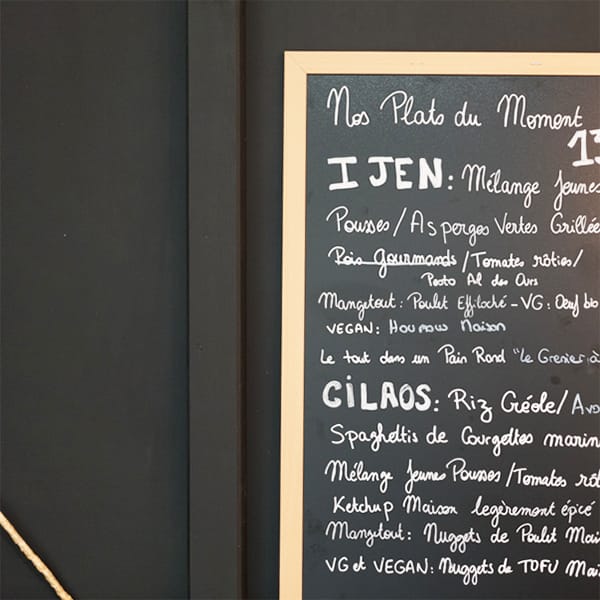 Nos Plats du Moment
13
IJEN: Mélange Jeunes
Pousses/Asperges Vertes Grillée
Pois Gourmands/Tomates rôties/
Pesto Ail des Ours
Mangetout: Poulet Effiloché-VG: Oeuf bio
VEGAN: Houmous Maison
Le tout dans un Pain Rond "Le Grenier à
CILAOS: Riz Créole/Avo
Spaghettis de Courgettes marin
Mélange Jeunes Pousses/Tomates rôt
Ketchup Maison legèrement épicé
Mangetout: Nuggets de Poulet Mai
VG et VEGAN: Nuggets de TOFU Mai